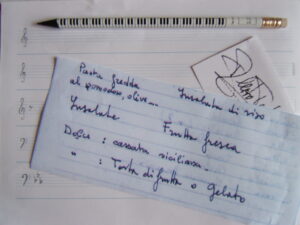 Pasta fredda
al pomodoro, olive...
Insalata di riso
Insalate
Frutta fresca
Dolce : cassata siciliana.
" : Torta di frutta o gelato